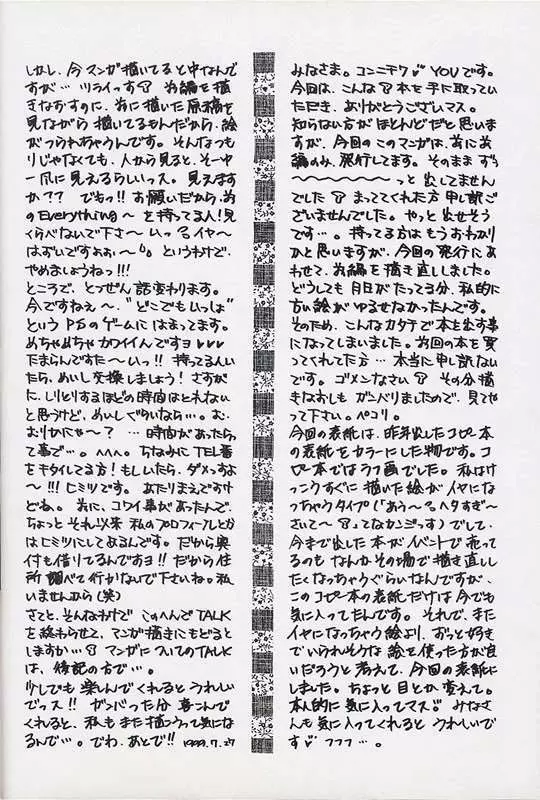 みなさま。コンニチワ♥ YOUです。
今回は、こんな本を手に取っていただき、ありがとうございマス。
知らない方がほとんどだと思いますが、今回のこのマンガは、前に前編のみ、発行してます。そのまま ずぅ
〜〜〜〜〜〜〜っと 出してません
でした まっててくれた方 申し訳ご
ざいませんでした。やっと出せそう
です…。持ってる方は もうおわかり
かと思いますが、今回の発行にあ
わせて、前編を描き直ししました。
どうしても 月日がたってる分、私的に
古い絵が ゆるせなかったんです。
そのため、こんなカタチで本を出す事
になってしまいました。前回の本を買
ってくれてた方… 本当に申し訳ない
です。ゴメンなさい その分描
きなおしも ガンバりましたので、見てや
って下さい。ペコリ。
今回の表紙は、昨年出したコピー本
の表紙をカラーにした物です。コ
ピー本では の画でした。私はけ
っこうすぐに描いた絵が イヤにな
っちゃうタイプ(「あぅ〜 ヘタすぎ〜
さいて〜 」ってなカンジっす)でして、
今まで出した本が イベントで売って
るのも なんか その場で描き直しし
たくなっちゃうぐらいなんですが、
このコピー本の表紙だけは今でも
気に入ってたんです。それで、また
イヤになっちゃう絵より、ずっと好き
でいられそうな 絵を使った方が良
いだろうと考えて、今回の表紙に
しました。ちょっと 目とか変えて。
本人的に気に入ってマス♥ みなさ
んも気に入ってくれると うれしいで
す♥ フフフ…。
しかし、今マンガ描いてると中なんで
すが… ツライっす 前編を描
きなおすのに、前に描いた原稿を
見ながら 描いてるもんだから、絵
がつられちゃうんです。そんなつも
りじゃなくても、人から見ると、そー中
一爪に見えるらしいっス。見えます
か?? でもっ!!お願いだから、前
のEverything〜を持ってる人!見
くらべないで下さ〜いっ イヤ〜
はずいですよぉぉ〜 というわけで、
やめましょうねっ!!!
ところで、とつぜん話変わります。
今ですねぇ〜、"どこでもいっしょ"
という PSのゲームに はまってます。
めちゃめちゃ カワイイんですヨ♥♥♥
たまらんですた〜いっ!! 持ってる人い
たら、めいし交換しましょう!さすが
に、しりとりするほどの時間はとれない
と思うけど、めいしぐらいなら…。お、
おりかにゃ〜? …時間があったら
って事で…。へへへ。ちなみに TEL番
をキタイしてる方!もしいたら、ダメっすよ
〜!!!ヒミツです。あたりまえですけ
どね。前に、コワイ事があったんで、
ちょっと それ以来 私のプロフィールとか
はヒミツにしてあるんです。だから奥
付も借りてるんですヨ!!だから住
所 調べて行かないで下さいねっ私
いませんから(笑)
さてと、そんなわけで このへんでTALK
を終わらせて、マンガ描きにもどると
しますか…マンガについてのTALK
は、後記の方で…。
少しでも 楽んでくれると うれしい
でっス!! ガンバった分 喜こんで
くれると、私もまた描こうって気にな
るんで…。でわ、あとで!! 1999.7.27